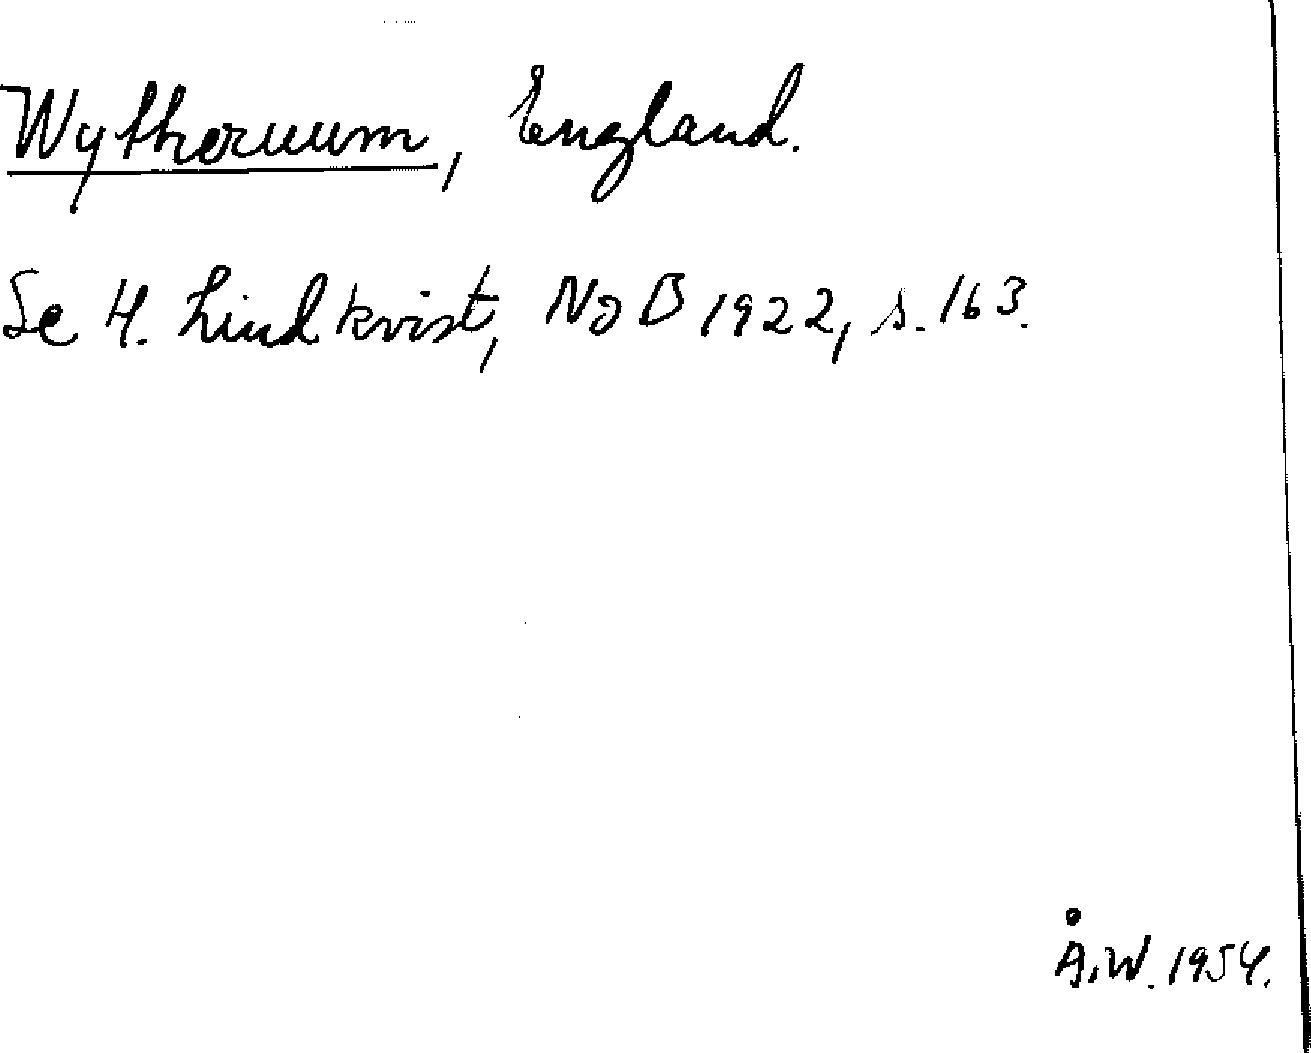 Wythornum, England.
Se H. Lindkvist, NoB 1922, s. 163.
Å.W. 1954.